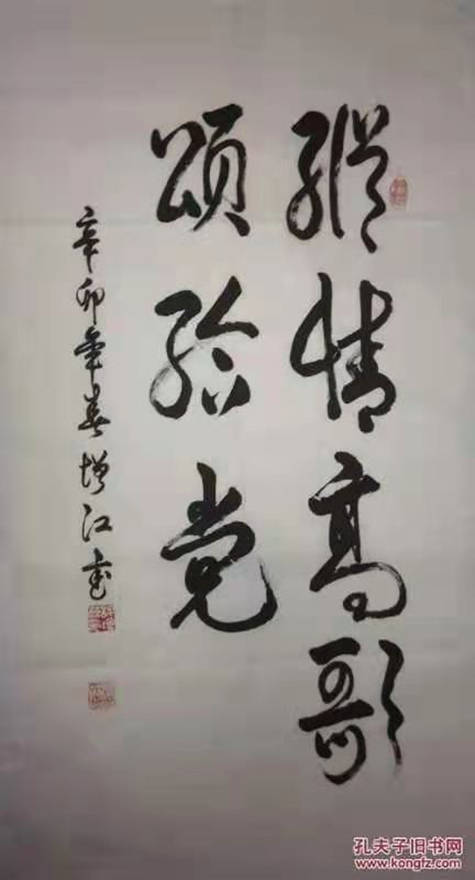 纵情高歌
颂给党
辛卯年春增江书
孔夫子旧书网
www.kongfz.com